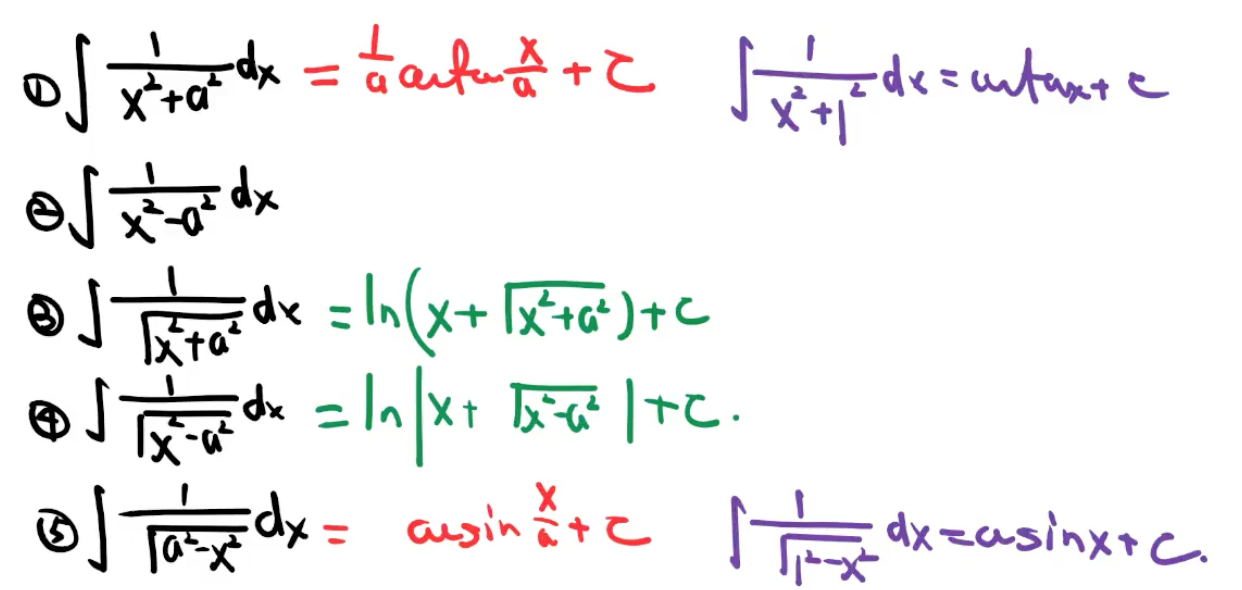 ① ∫ 1/(x²+a²) dx = 1/a arctan x/a + C    ∫ 1/(x²+1²) dx = arctanx + C
② ∫ 1/(x²-a²) dx
③ ∫ 1/√(x²+a²) dx = ln(x+√(x²+a²))+C
④ ∫ 1/√(x²-a²) dx = ln|x+√(x²-a²)|+C.
⑤ ∫ 1/√(a²-x²) dx = arcsin x/a + C    ∫ 1/√(1²-x²) dx = arcsinx + C.